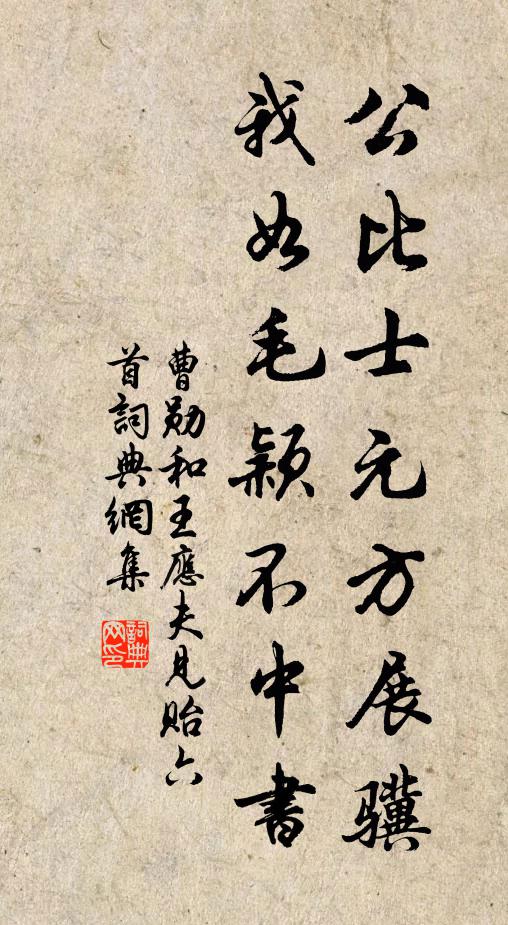 公比士元方展骥
我如毛颖不中書
曹勋和王應夫見貽六
首詞典網集
詞典网印